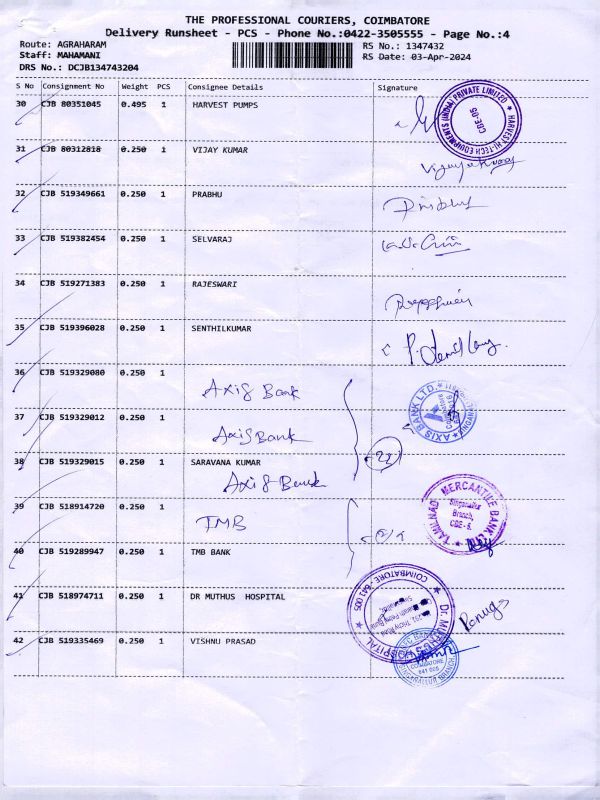 THE PROFESSIONAL COURIERS, COIMBATORE
Delivery Runsheet - PCS - Phone No.:0422-3505555 - Page No.:4
Route: AGRAHARAM RS No.: 1347432
Staff: MAHAMANI RS Date: 03-Apr-2024
DRS No.: DCJB134743204
S No Consignment No Weight PCS Consignee Details Signature
30 CJB 80351045 0.495 1 HARVEST PUMPS
HARVEST HI-TECH EQUIPMENTS (INDIA) PRIVATE LIMITED
CBE-05
31 CJB 80312818 0.250 1 VIJAY KUMAR
32 CJB 519349661 0.250 1 PRABHU
33 CJB 519382454 0.250 1 SELVARAJ
34 CJB 519271383 0.250 1 RAJESWARI
35 CJB 519396028 0.250 1 SENTHILKUMAR
36 CJB 519329080 0.250 1
Axis Bank
AXIS BANK LTD.
37 CJB 519329012 0.250 1
Axis Bank
38 CJB 519329015 0.250 1 SARAVANA KUMAR
Axis Bank
39 CJB 518914720 0.250 1
TMB
TAMILNAD MERCANTILE BANK LTD
Singanallur
Branch,
CBE - 5.
40 CJB 519289947 0.250 1 TMB BANK
41 CJB 518974711 0.250 1 DR MUTHUS HOSPITAL
Dr. MUTHUS HOSPITAL
COIMBATORE - 641 005
42 CJB 519335469 0.250 1 VISHNU PRASAD
COIMBATORE
641 005
SINGANALLUR BRANCH